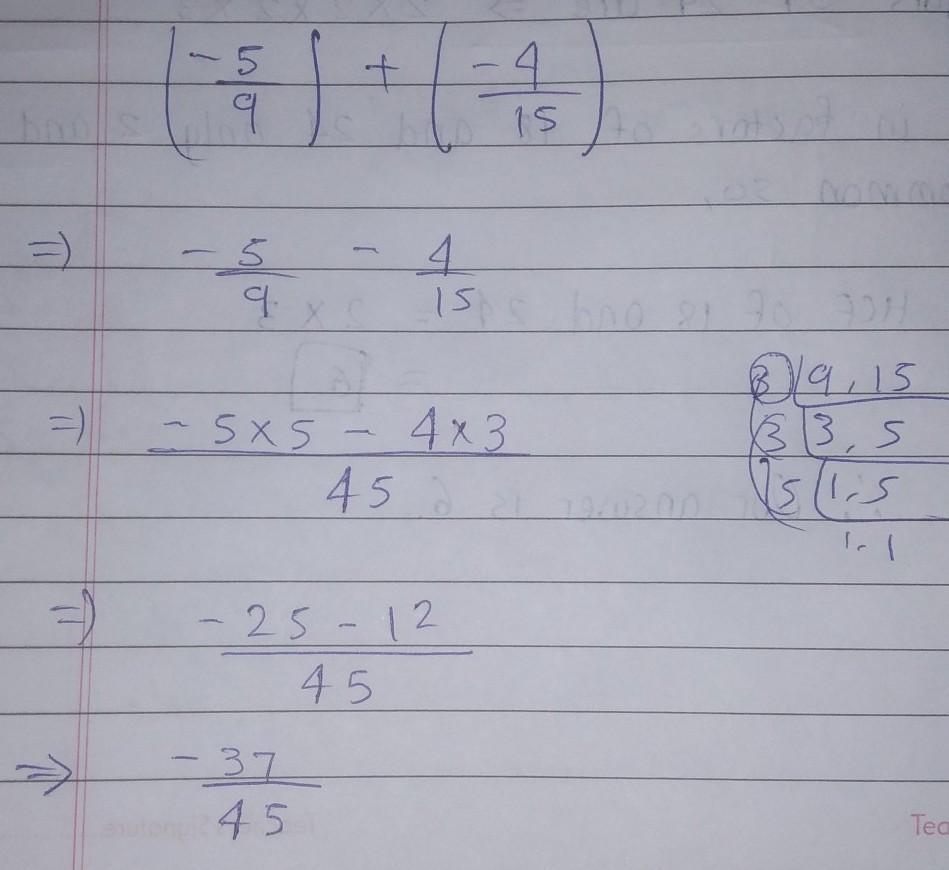 (-5/9) + (-4/15)
=) -5/9 - 4/15
3 | 9, 15
=) -5×5 - 4×3 / 45
3 | 3, 5
5 | 1, 5
1, 1
=) -25-12 / 45
=> -37/45
Tea